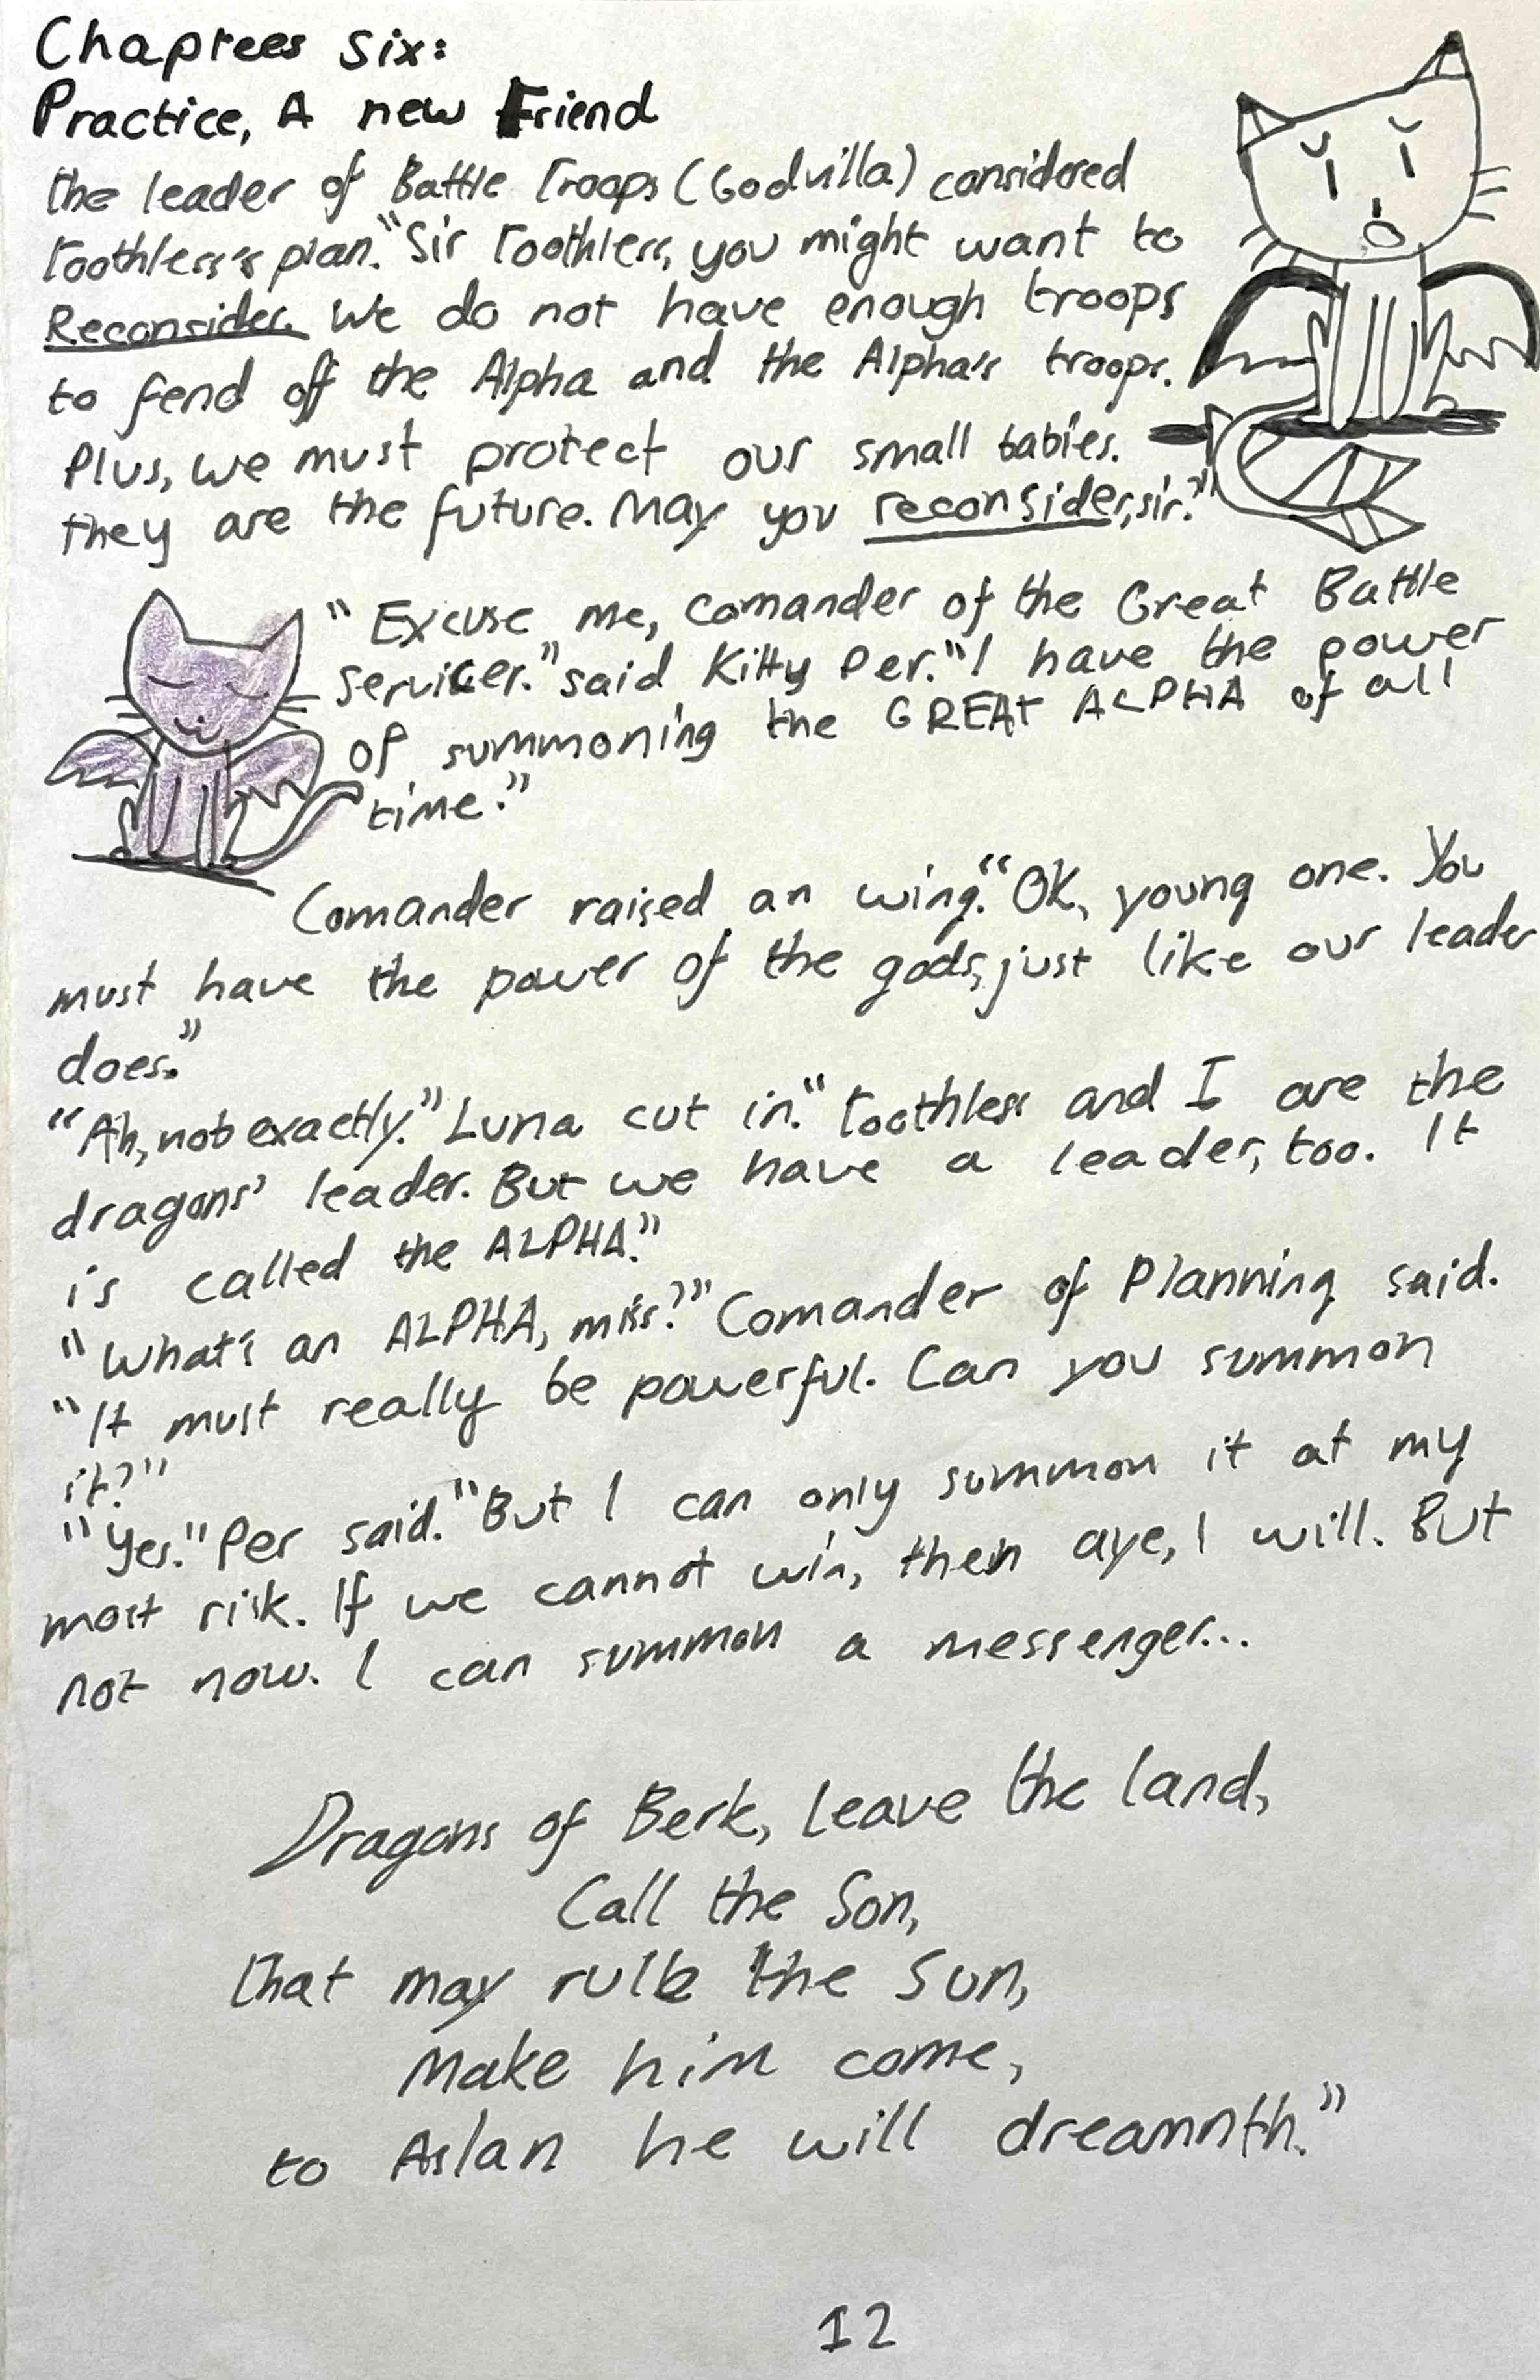 Chaptees Six:
Practice, A new Friend
the leader of Battle Troops (Godvilla) considered
Toothless's plan. "Sir Toothless, you might want to
Reconsider. We do not have enough troops
to fend off the Alpha and the Alpha's troops.
Plus, we must protect our small babies.
they are the future. May you reconsider, sir."
"Excuse me, comander of the Great Battle
servicer." said Kitty Per. "I have the power
of summoning the GREAT ALPHA of all
time."
Comander raised an wing. "OK, young one. You
must have the power of the gods, just like our leader
does."
"Ah, not exactly." Luna cut in. "Toothless and I are the
dragons' leader. But we have a leader, too. It
is called the ALPHA."
"What's an ALPHA, miss?" Comander of Planning said.
"It must really be powerful. Can you summon
it?"
"Yes." Per said. "But I can only summon it at my
most risk. If we cannot win, then aye, I will. But
not now. I can summon a messenger...
Dragons of Berk, leave the land,
Call the Son,
that may rule the Sun,
Make him come,
to Aslan he will dreamnth."
12